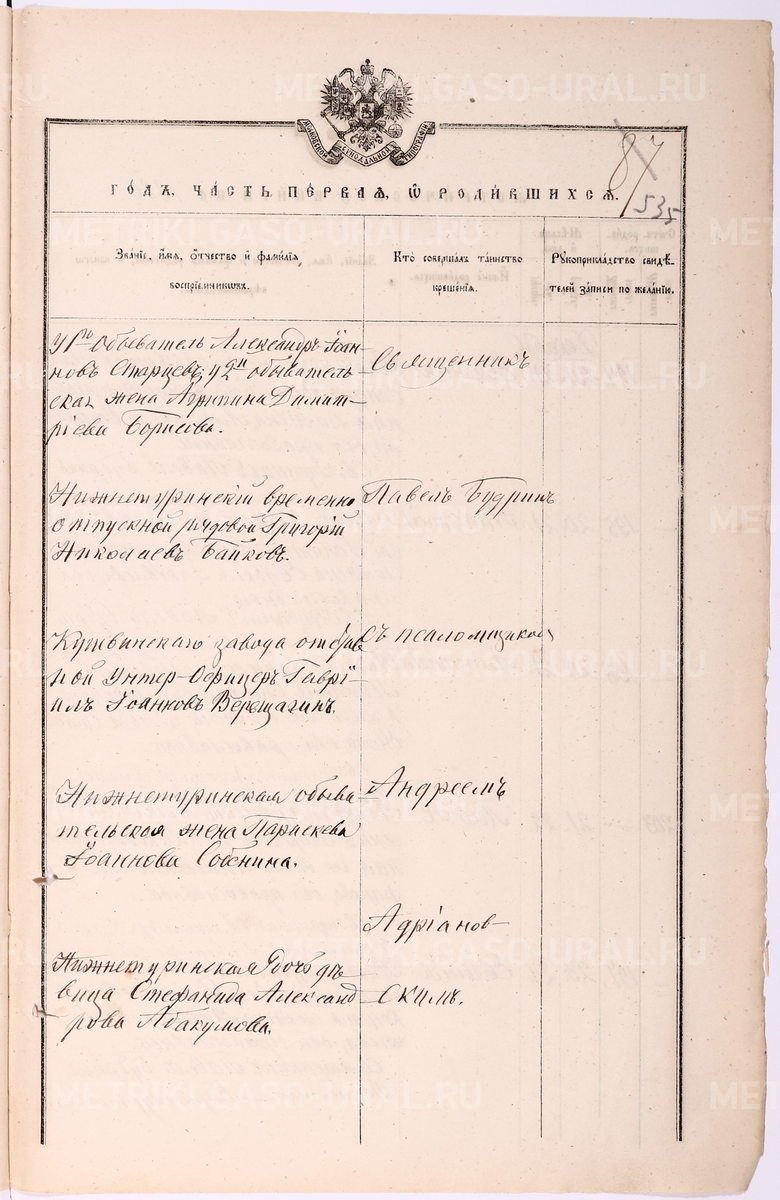 МОСКОВСКОЙ СѴНОДАЛЬНОЙ ТИПОГРАФІИ
87
535
ГО́ДЪ, ЧА́СТЬ ПЕ́РВАЯ, Ѽ РОДИ́ВШИХСЯ.
Зва́нїе, и҆́мя, ѻ҆́тчество и҆ фами́лїя
воспрїе́мниковъ.
Кто̀ соверша́лъ та́инство
креще́нїя.
Рꙋкоприкла́дство свидѣ́-
телей за́писи по жела́нїю.
обыватель Александръ Іоан-
новъ Старцевъ; обыватель-
ская жена Агрипина Димит-
ріева Борисова.
Священникъ
Нижнетуринскій временно
отпускной рядовой Григорій
Николаевъ Байковъ.
Павелъ Будринъ
Кушвинскаго завода отстав
ной Унтер-Офицеръ Гаврі-
илъ Іоанновъ Верещагинъ.
съ псаломщикомъ
Нижнетуринская обыва
тельская жена Параскева
Іоаннова Собенина.
Андреемъ
Адріанов-
Нижнетуринская дочь дѣ-
вица Стефанида Александ
рова Абакумова.
скимъ.
METRIKI.GASO-URAL.RU